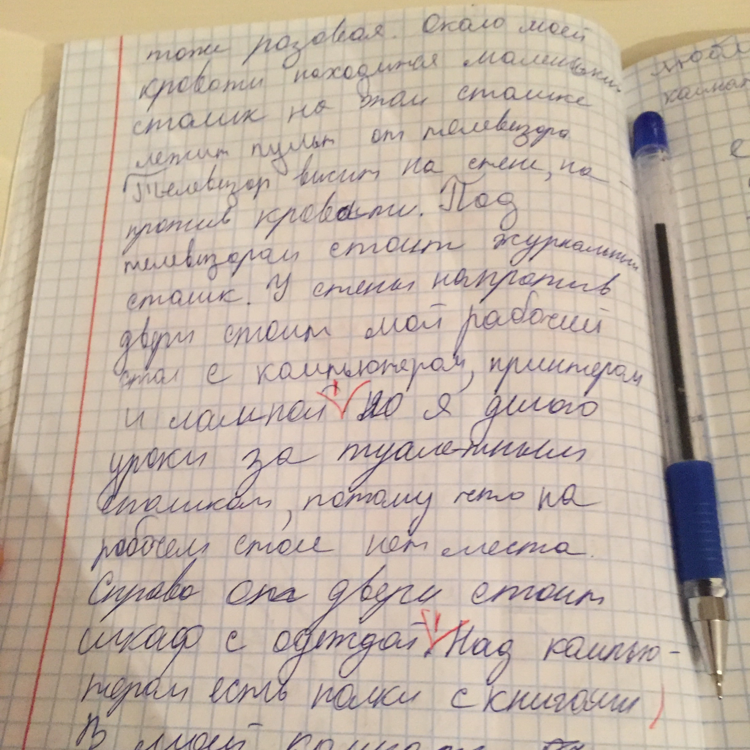 тоже розовая. Около моей
кровати находится маленький
столик на этом столике
лежит пульт от телевизора
Телевизор висит на стене, на-
против кровати. Под
телевизором стоит журнальный
столик. У стены напротив
двери стоит мой рабочий
стол с компьютером, принтером
и лампой. Но я делаю
уроки за туалетным
столиком, потому что на
рабочем столе нет места.
Справа от двери стоит
шкаф с одеждой. Над компью-
тером есть полки с книгами
В моей комнате